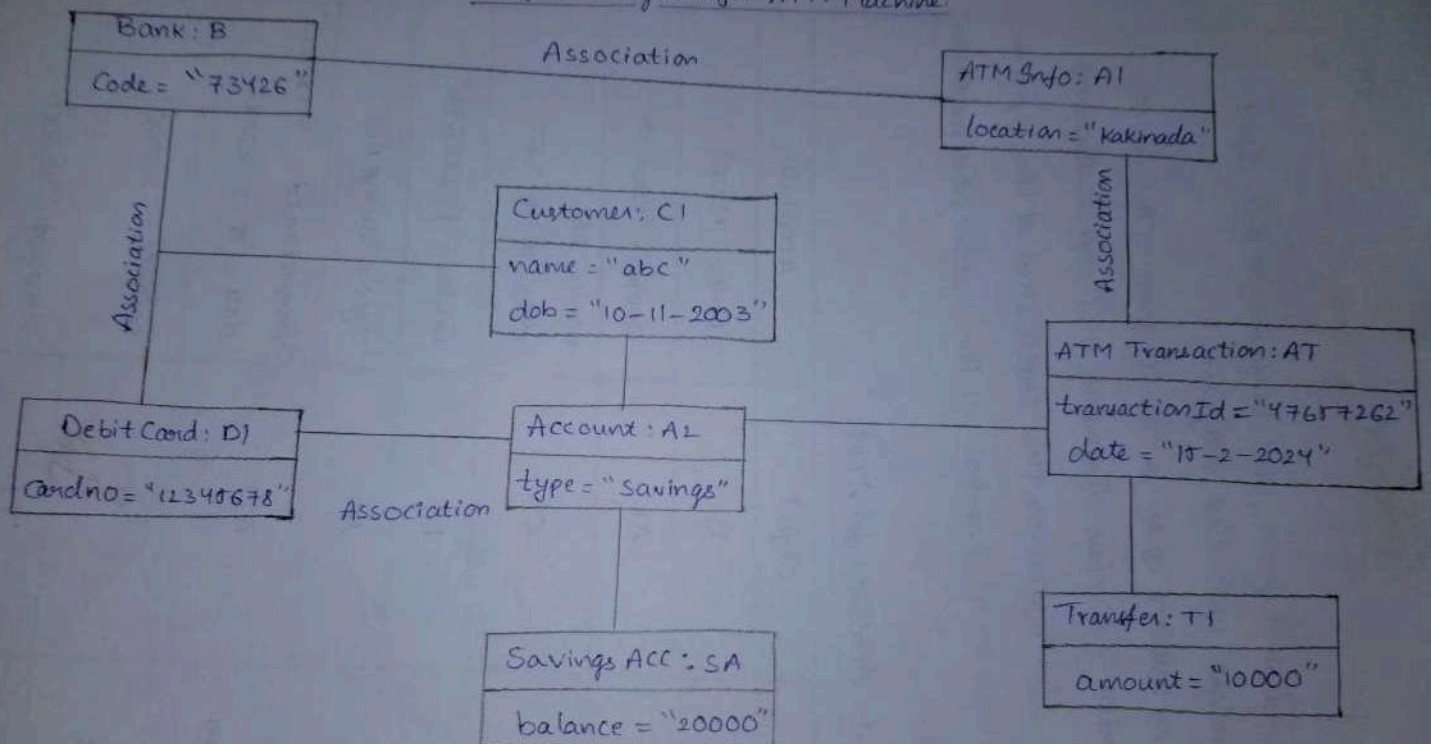 Machine
Bank: B
Code = "73426"
Association
ATM Info: A1
location = "Kakinada"
Association
Association
Customer: C1
name = "abc"
dob = "10-11-2003"
ATM Transaction: AT
date = "15-2-2024"
Debit Card: D1
cardno = "12345678"
Association
Account: A2
type = "Savings"
Savings Acc: SA
balance = "20000"
Transfer: T1
amount = "10000"